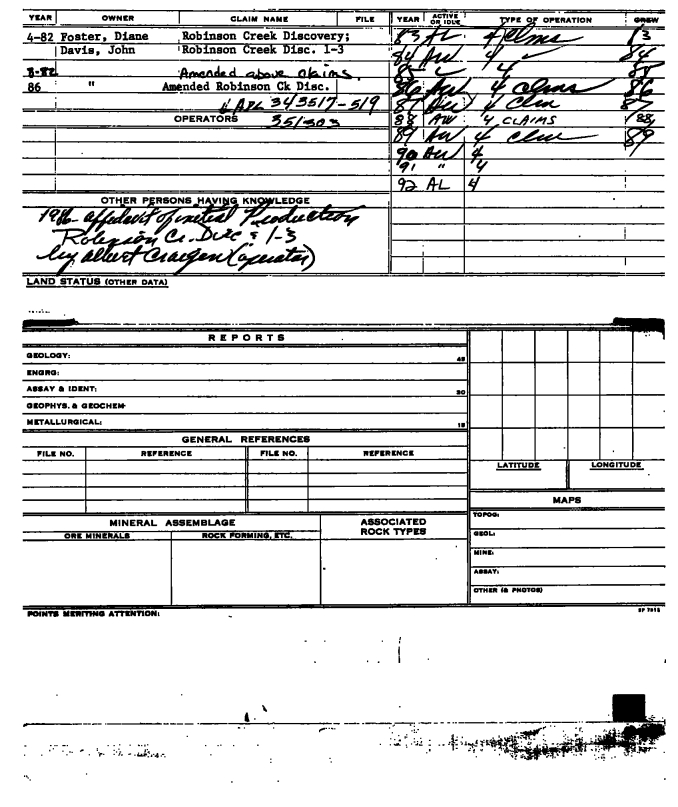 YEAR OWNER CLAIM NAME FILE YEAR ACTIVE OR IDLE TYPE OF OPERATION CREW
4-82 Foster, Diane Robinson Creek Discovery; 83 AL 4 clms 83
Davis, John Robinson Creek Disc. 1-3 84 AW 4 84
8-82 Amended above claims. 85 4 85
86 " Amended Robinson Ck Disc. 86 AW 4 clms 86
& APL 343517-519 87 AW 4 clm 87
OPERATORS 351303 88 AW 4 CLAIMS 88
89 AW 4 clm 89
90 AW 4
91 " 4
92 AL 4
OTHER PERSONS HAVING KNOWLEDGE
1986- affidavit of initial Production
Robinson Cr. Disc & 1-3
by Albert Craegen (operator)
LAND STATUS (OTHER DATA)
REPORTS
GEOLOGY: 45
ENGRG:
ASSAY & IDENT: 30
GEOPHYS. & GEOCHEM
METALLURGICAL: 15
GENERAL REFERENCES
FILE NO. REFERENCE FILE NO. REFERENCE
LATITUDE LONGITUDE
MAPS
TOPOG:
MINERAL ASSEMBLAGE ASSOCIATED ROCK TYPES
ORE MINERALS ROCK FORMING, ETC.
GEOL:
MINE:
ASSAY:
OTHER (& PHOTOS)
POINTS MERITING ATTENTION: SP 7813